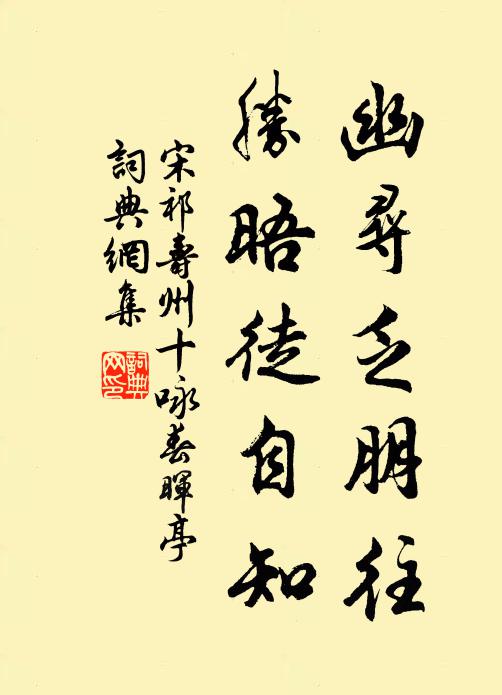 幽尋乏朋往
勝晤徒自知
宋祁壽州十咏春暉亭
詞典網集
詞典網印